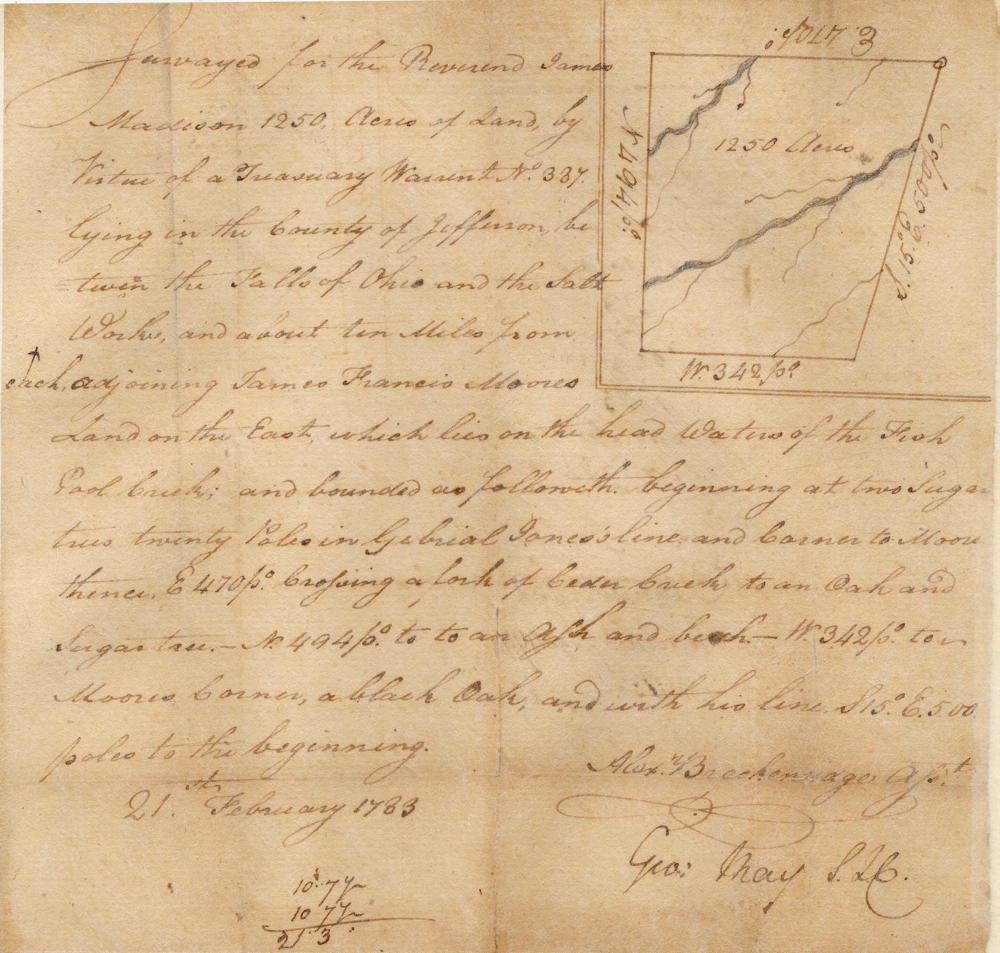 Survayed for the Reverend James
Madison 1250, Acres of Land, by
Virtue of a Treasuary Warrent No. 387.
lying in the County of Jefferson, be
tween the Falls of Ohio and the Salt
Works, and about ten Miles from
each, adjoining James Francis Moores
Land on the East, which lies on the head Waters of the Fish
Pool Creek; and bounded as followeth. beginning at two Sugar
trees twenty Poles in Gabrial Jones's line and Corner to Moore
thence. E 470 po. Crossing a fork of Ceder Creek to an Oak and
Sugar tree. — N. 494 po. to to an Ash and beach. — W. 342 po. to
Moores Corner, a black Oak, and with his line. S 15.° E. 500
poles to the beginning.
21.st February 1783
Alexr. Breckenridge Asst.
Geo: May S. J. C.
10.7
10 7
21 3
E 470 po.
N 494 po.
1250 Acres
S 15.° E. 500 po.
W. 342 po.